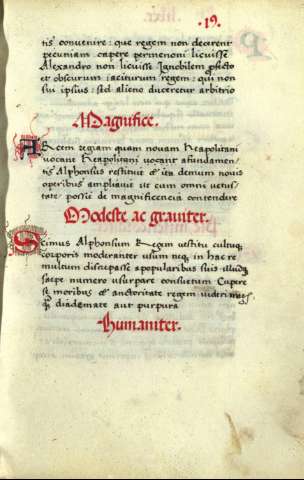 ·19·
tis convenire: que regem non decerent
pecuniam capere permenoni licuisse
Alexandro non licuisse Ignobilem
et obscurum: aciturum regem: qui non
sui ipsius: sed alieno duceretur arbitrio
Magnifice.
Arcem regiam quam novam Neapolitani
vocant Neapolitani vocant afundamen
tis Alphonsus restituit & ita demum novis
operibus ampliavit ut cum omni venus
tate possit de magnificencia contendere
Modeste ac graviter.
Scimus Alphonsum Regem vestitu cultuq
corporis moderanter usum neq in hac re
multum discrepasse apopularibus suis illudq
saepe numero usurpare consuetum Cupere
se moribus & auctoritate regem videri magis
q diademate aut purpura
Humaniter.